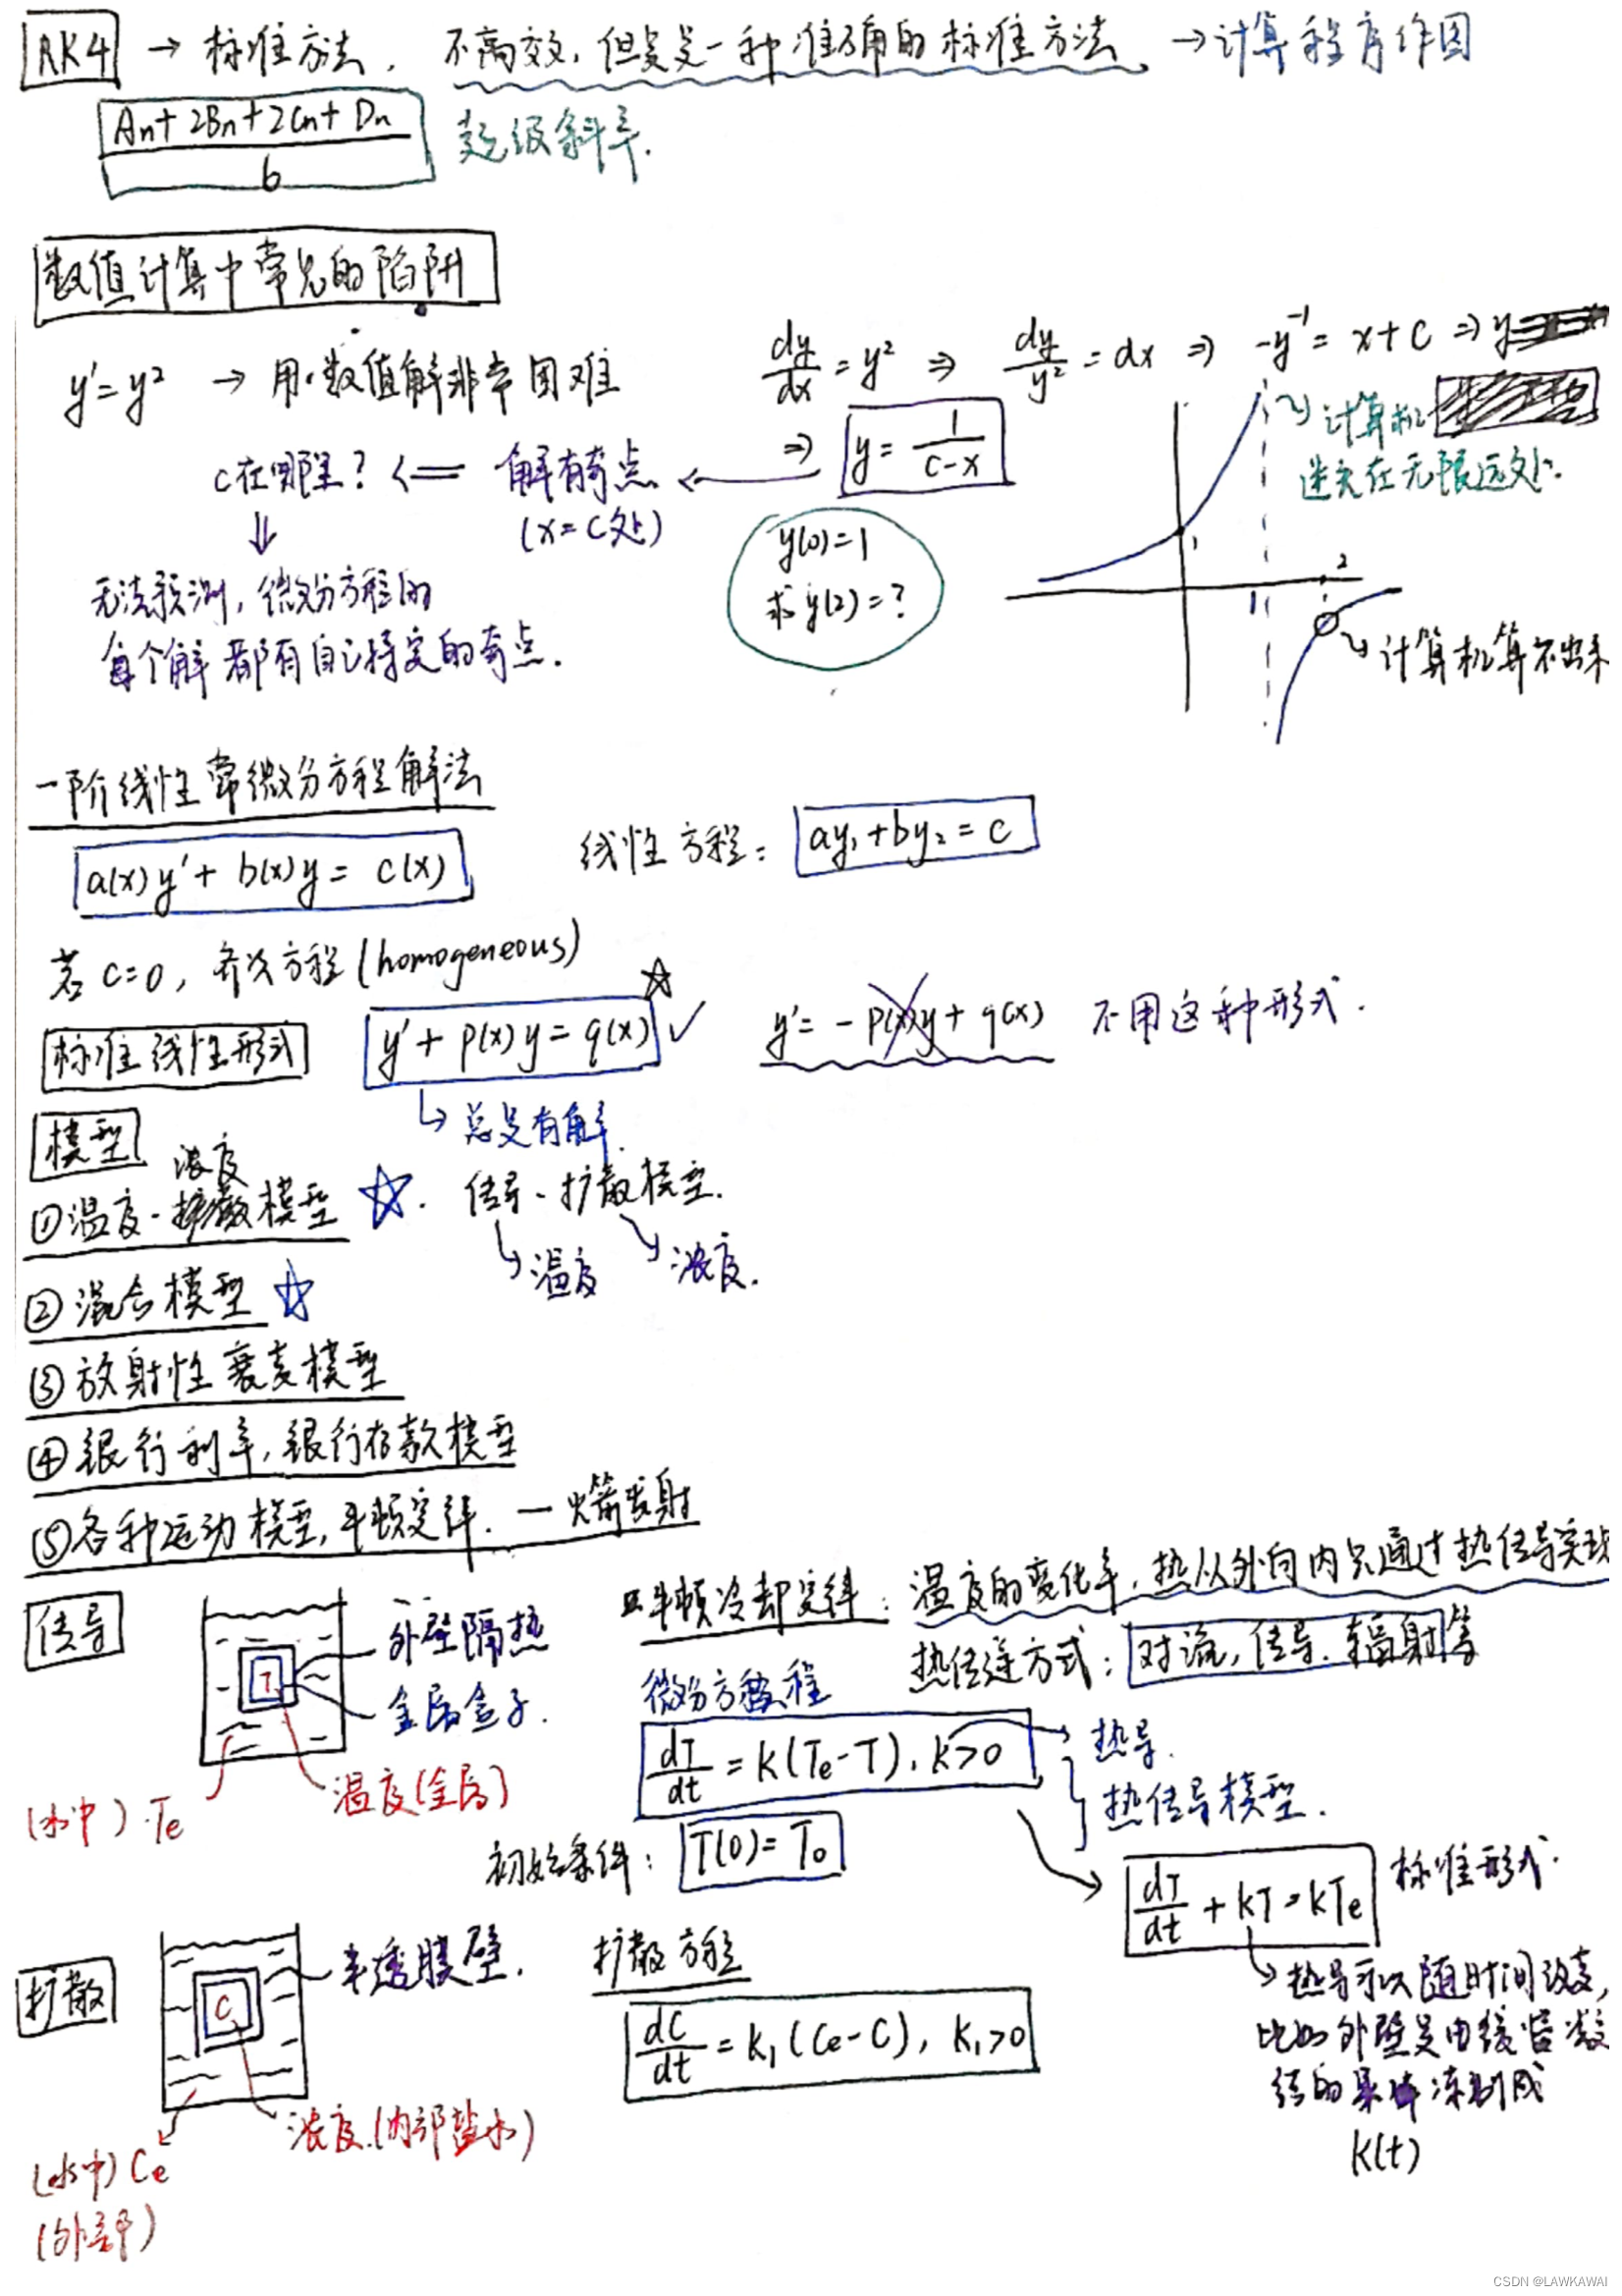 RK4 → 标准方法, 不高效, 但是是一种准确的标准方法 → 计算程序作图
An + 2Bn + 2Cn + Dn
6
超级斜率.
数值计算中常见的陷阱
y' = y² → 用数值解非常困难
dy/dx = y² ⇒ dy/y² = dx ⇒ -y⁻¹ = x + C ⇒ y
⇒ y = 1/(c-x)
计算机
迷失在无限远处.
c在哪里? ⇐ 解有奇点
(x = c处)
y(0) = 1
求 y(2) = ?
1
1
2
计算机算不出来
无法预测, 微分方程的
每个解都有自己特定的奇点.
一阶线性常微分方程解法
a(x)y' + b(x)y = c(x)
线性方程: ay₁ + by₂ = c
若 c=0, 齐次方程 (homogeneous)
标准线性形式 y' + p(x)y = q(x) ✓ y' = -p(x)y + q(x) 不用这种形式.
↳ 总是有解.
模型
浓度
①温度-扩散模型 ☆. 传导-扩散模型.
↳ 温度 ↘ 浓度.
②混合模型 ☆
③放射性衰变模型
④银行利率, 银行存款模型
⑤各种运动模型, 牛顿定律. — 火箭发射
传导
T
外壁隔热
金属盒子.
温度(金属)
(水中) Te
牛顿冷却定律: 温度的变化率, 热从外向内只通过热传导实现
热传递方式: 对流, 传导. 辐射等
微分方程
dT/dt = k(Te - T), k > 0
热导.
热传导模型.
初始条件: T(0) = T₀
dT/dt + kT = kTe 标准形式.
热导可以随时间改变,
比如外壁是由缓慢
结的 冻制成
k(t)
扩散
C
半透膜壁.
浓度.(内部盐水)
(水中) Ce
(外部)
扩散方程
dC/dt = k₁(Ce - C), k₁ > 0
CSDN @LAWKAWAI